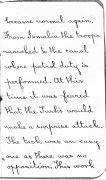 became normal again.
From Somalia the troops
marched to the canal
where patrol duty is
performed. At this
time it was feared
that the Turks would
make a surprise attack.
The task was an easy
one as there was no
opposition. This work